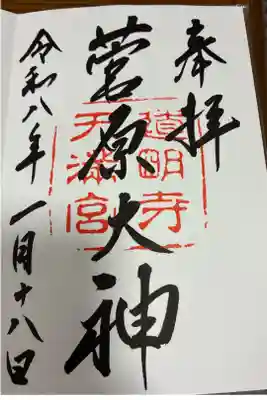 奉拝
道明寺
天満宮
菅原大神
令和八年一月十八日